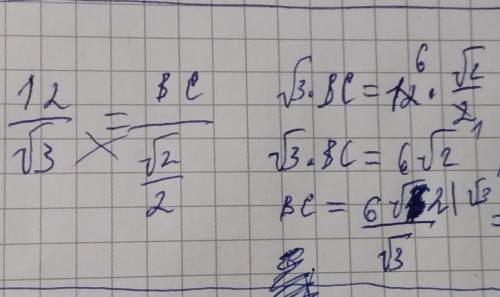 12/√3 = BC/(√2/2)
√3 · BC = 12 6 · √2/2 1
√3 · BC = 6√2
BC = 6√2/√3 | √3 =